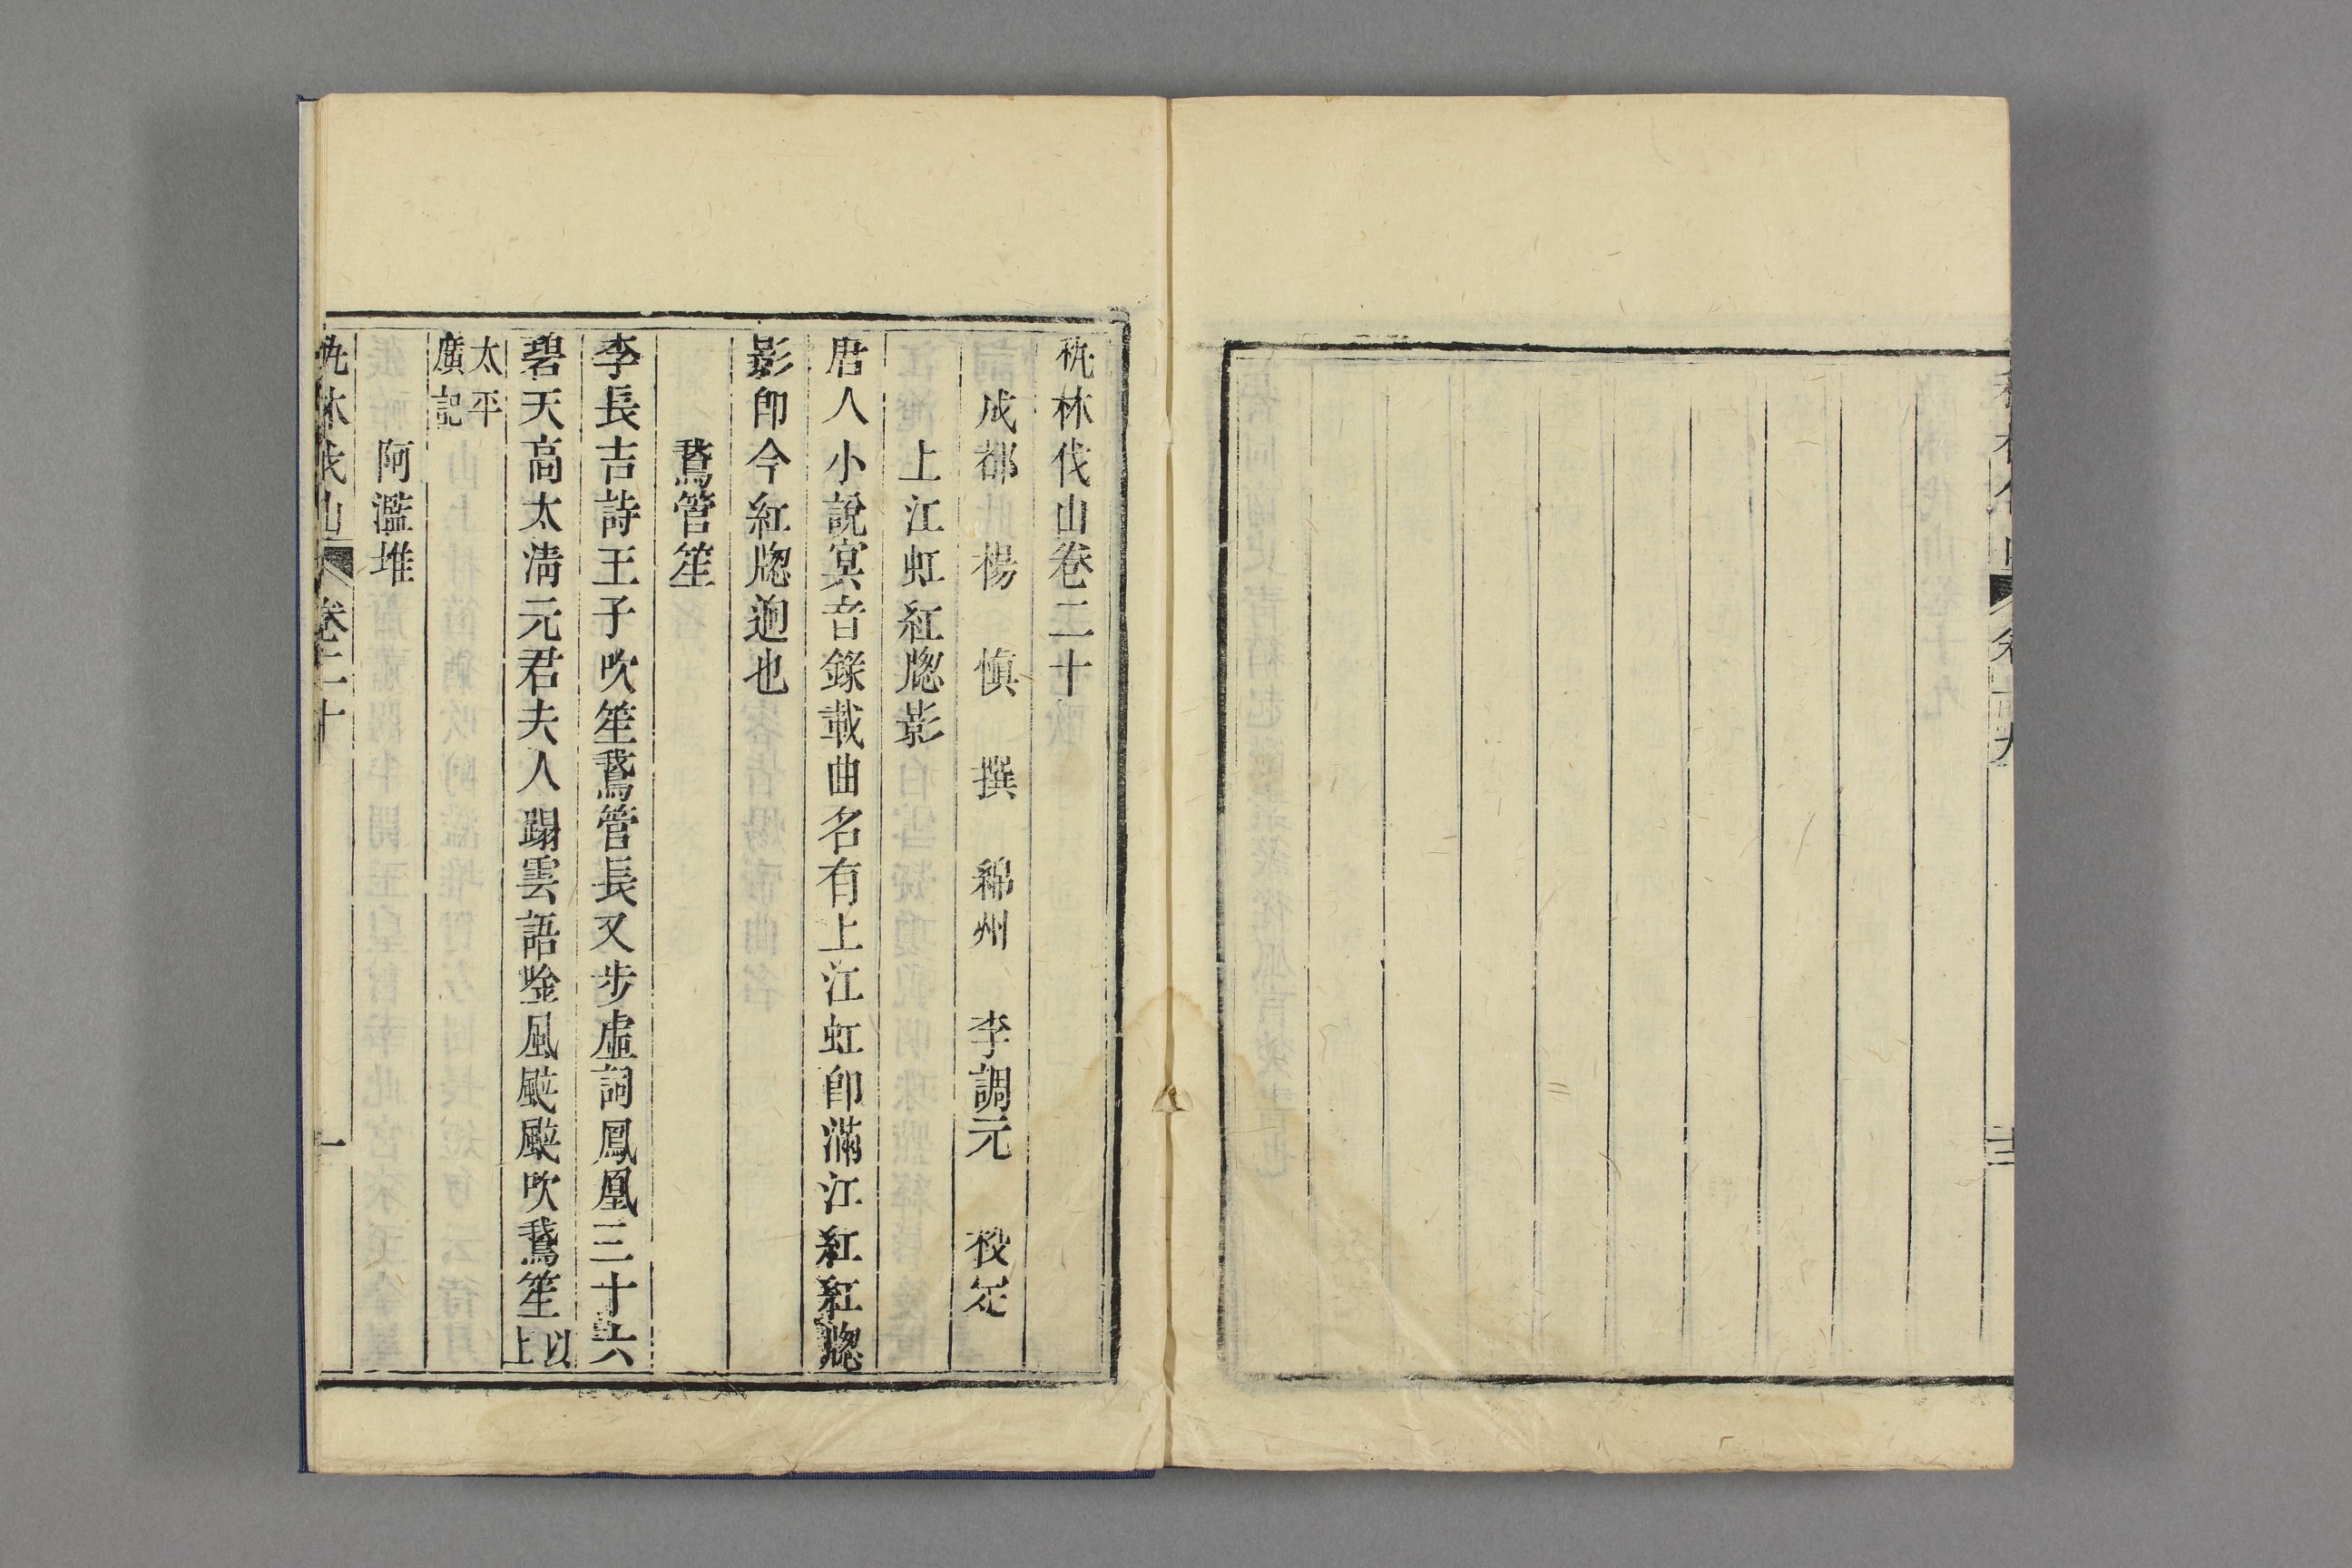 秇林伐山卷二十
成都 楊 慎 撰 綿州 李調元 校定
上江虹紅牕影
唐人小說冥音錄載曲名有上江虹卽滿江紅紅牕
影卽今紅牕迥也
鵞管笙
李長吉詩王子吹笙鵞管長又步虛詞鳳凰三十六
碧天高太淸元君夫人蹋雲語唫風颼颼吹鵞笙以上
太平廣記
阿濫堆
秇林伐山 卷二十 一